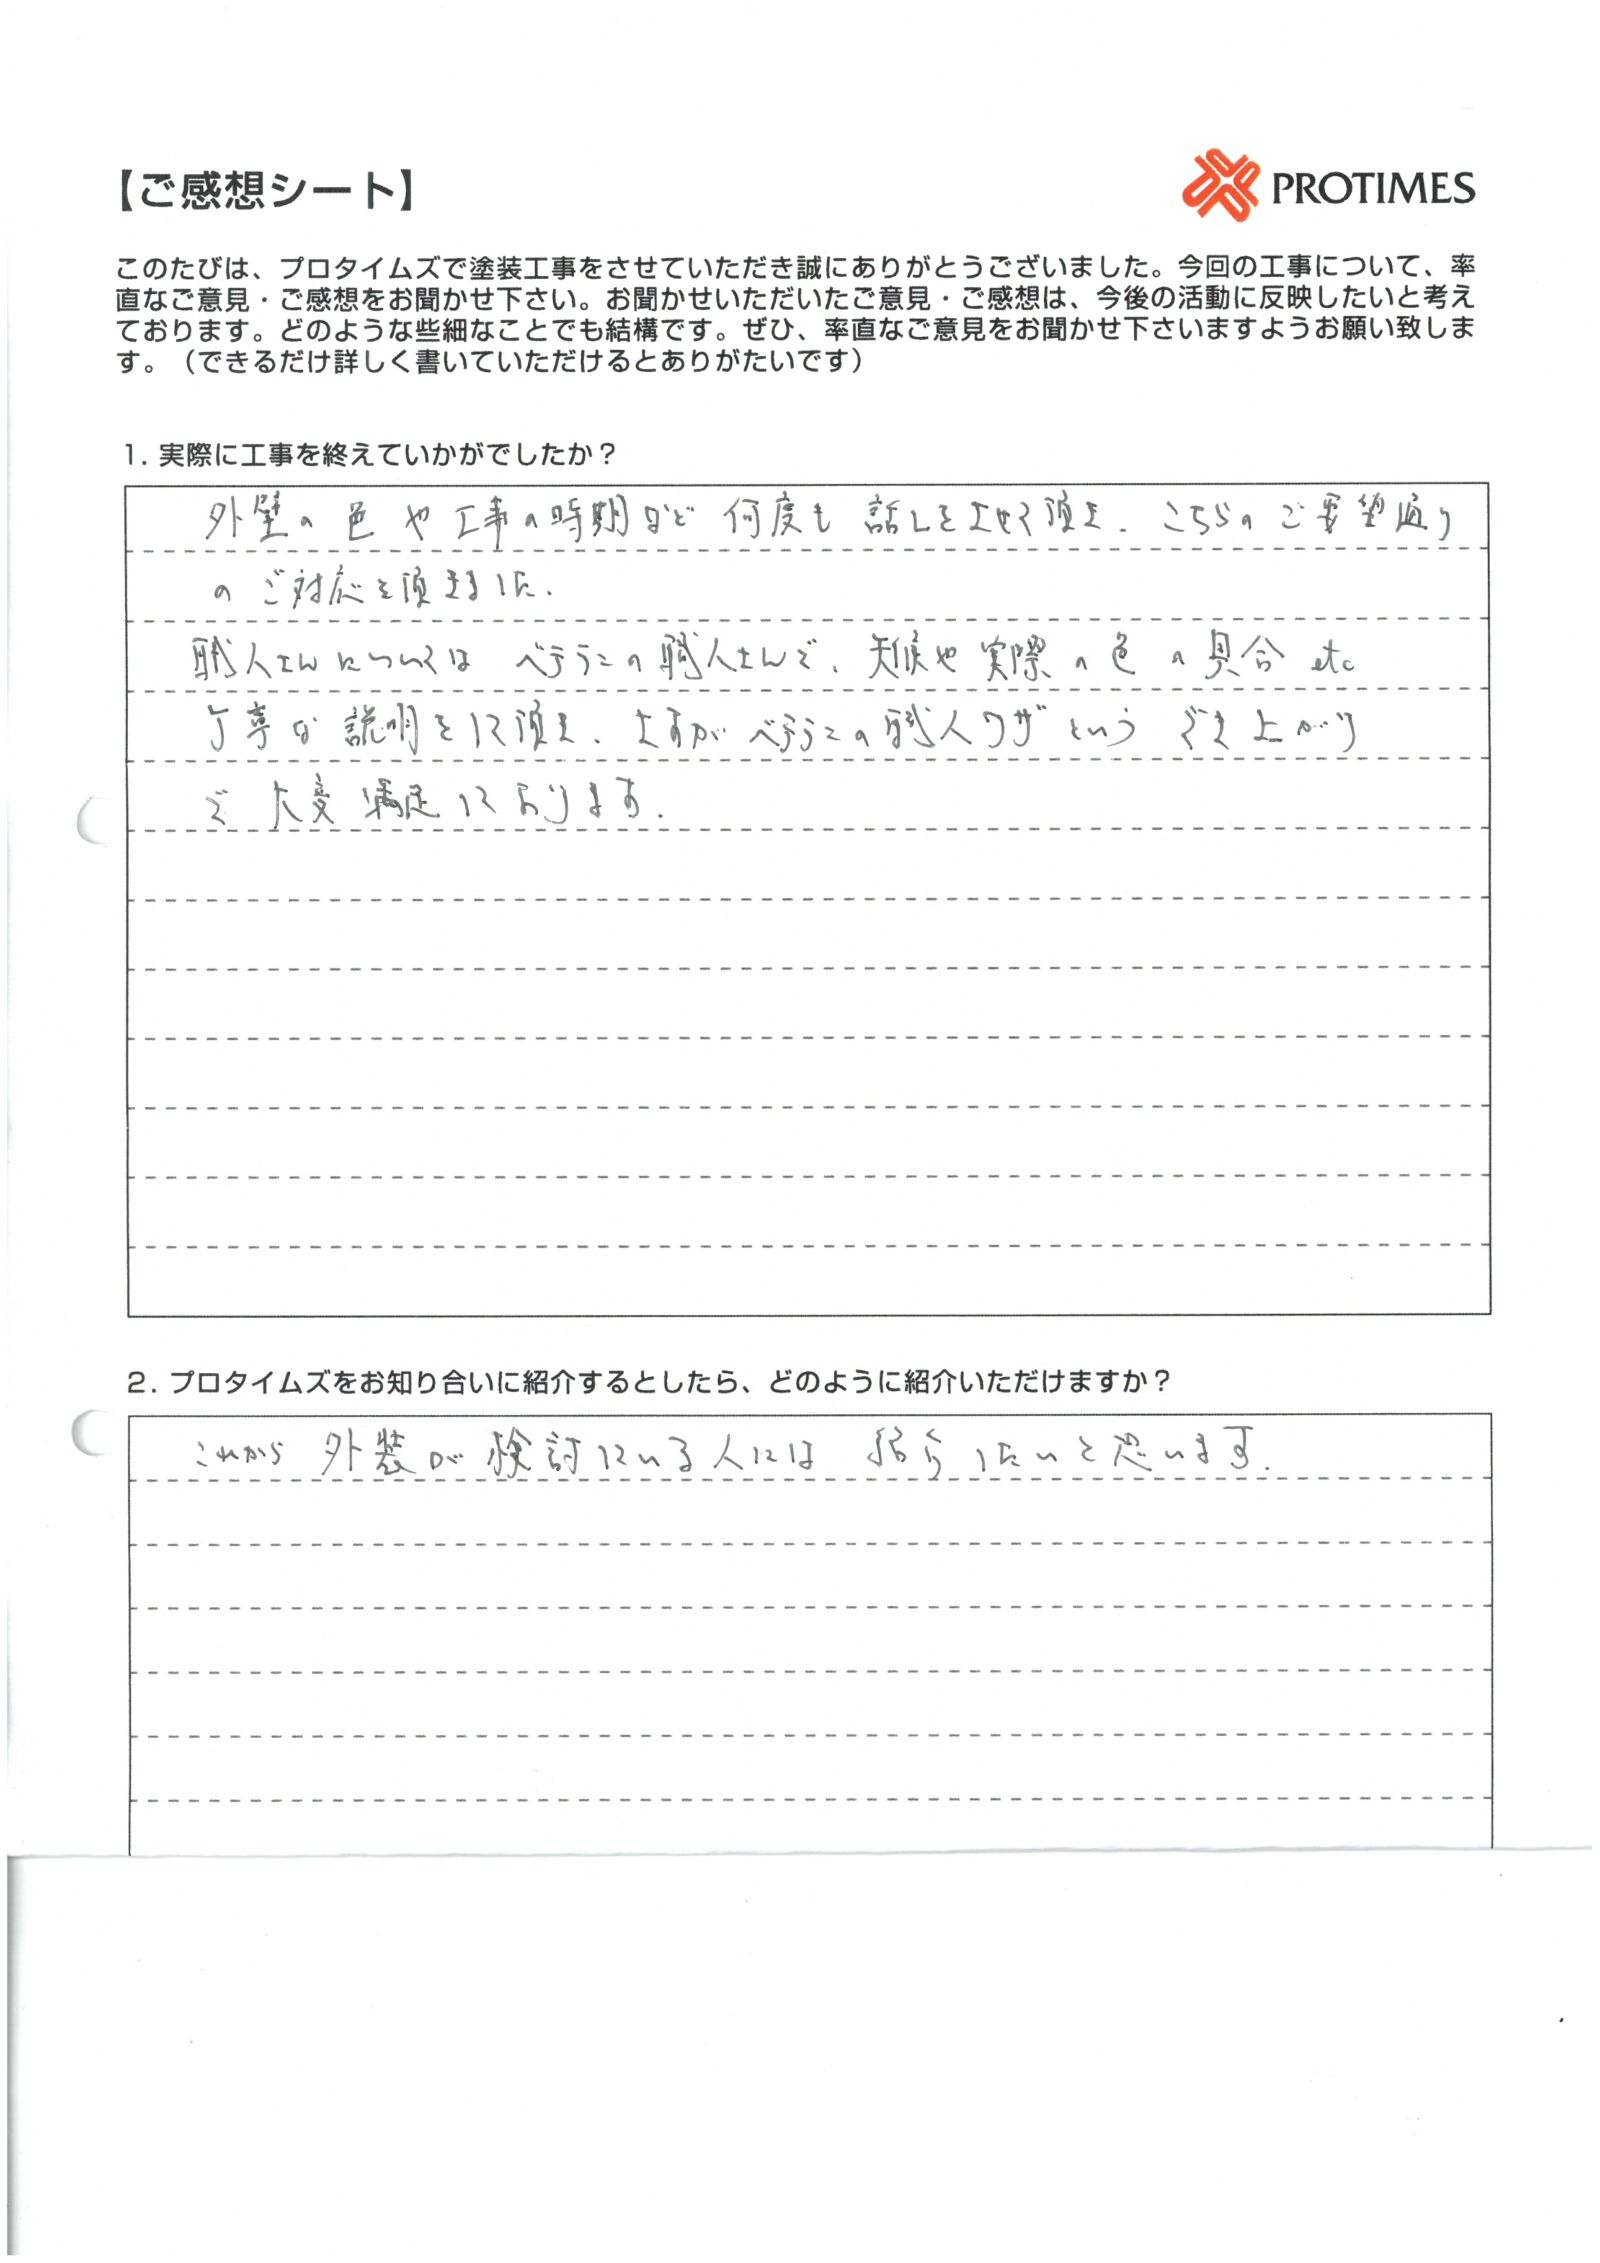 【ご感想シート】
PROTIMES
このたびは、プロタイムズで塗装工事をさせていただき誠にありがとうございました。今回の工事について、率
直なご意見・ご感想をお聞かせ下さい。お聞かせいただいたご意見・ご感想は、今後の活動に反映したいと考え
ております。どのような些細なことでも結構です。ぜひ、率直なご意見をお聞かせ下さいますようお願い致しま
す。（できるだけ詳しく書いていただけるとありがたいです）
1. 実際に工事を終えていかがでしたか？
外壁の色や工事の時期など何度も話しをさせて頂き、こちらのご要望通り
のご対応を頂きました。
職人さんについてはベテランの職人さんで、天候や実際の色の具合etc
丁寧な説明をして頂き、さすがベテランの職人ワザというでき上がり
で大変満足しております。
2. プロタイムズをお知り合いに紹介するとしたら、どのように紹介いただけますか？
これから外装が検討している人には紹介したいと思います。